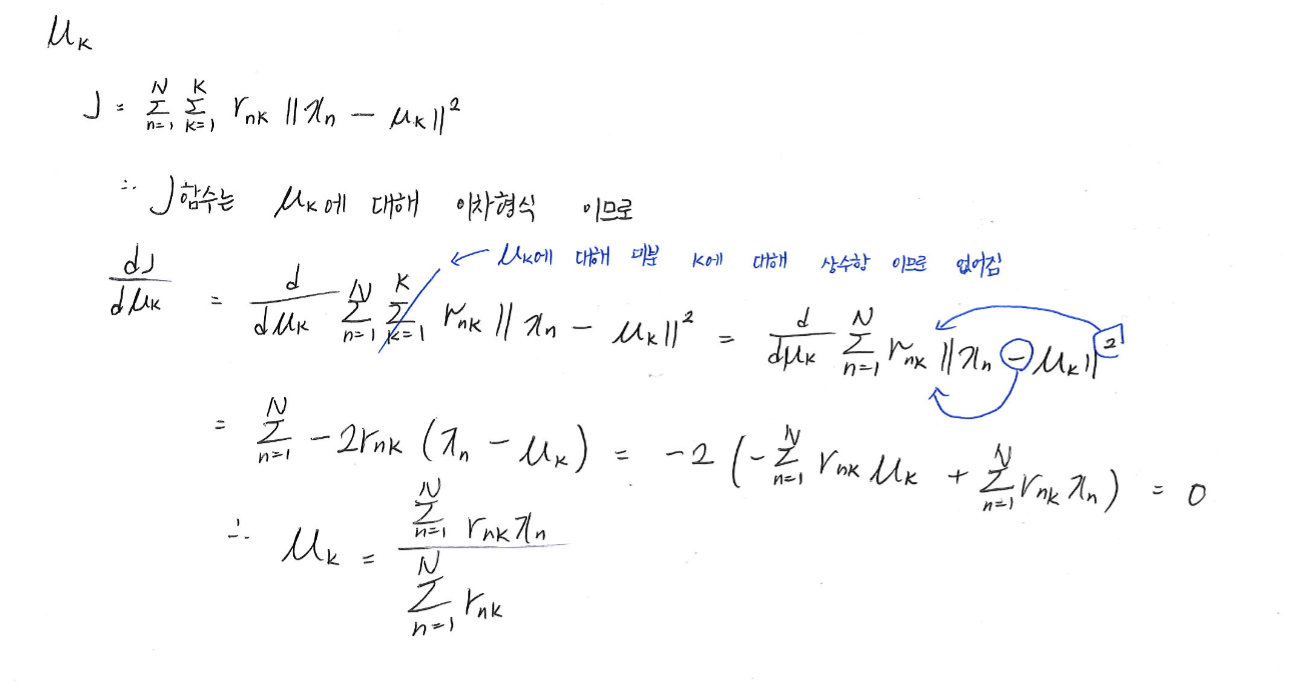 μₖ
J = Σₙ₌₁ᴺ Σₖ₌₁ᴷ rₙₖ ||xₙ − μₖ||²
∴ J함수는 μₖ에 대해 이차형식 이므로
← μₖ에 대해 미분 k에 대해 상수항 이므로 없어짐
dJ/dμₖ = d/dμₖ Σₙ₌₁ᴺ Σₖ₌₁ᴷ rₙₖ ||xₙ − μₖ||² = d/dμₖ Σₙ₌₁ᴺ rₙₖ ||xₙ − μₖ||²
= Σₙ₌₁ᴺ −2rₙₖ (xₙ − μₖ) = −2 (−Σₙ₌₁ᴺ rₙₖ μₖ + Σₙ₌₁ᴺ rₙₖ xₙ) = 0
∴ μₖ = Σₙ₌₁ᴺ rₙₖ xₙ / Σₙ₌₁ᴺ rₙₖ